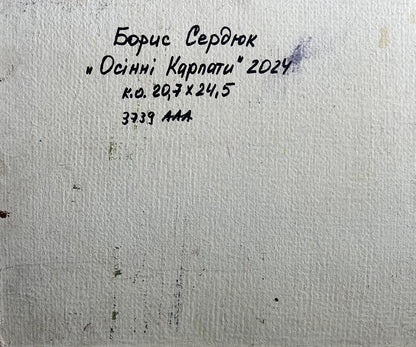 Борис Сердюк
„Осінні Карпати" 2024
к.о. 20,7 x 24,5
3739 ААА